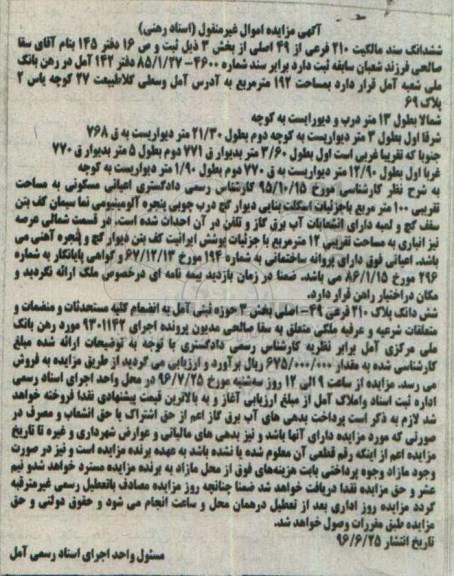 آگهی مزایده اموال غیرمنقول (اسناد رهنی)
ششدانگ سند مالکیت ۲۱۰ فرعی از ۴۹ اصلی از بخش ۳ ذیل ثبت و ص ۱۶ دفتر ۱۴۵ بنام آقای سقا
صالحی فرزند شعبان سابقه ثبت دارد برابر سند شماره ۴۶۰۰-۸۵/۱/۲۷ دفتر ۱۴۲ آمل در رهن بانک
ملی شعبه آمل قرار دارد بمساحت ۱۹۲ مترمربع به آدرس آمل وسطی کلاطبیعت ۲۷ کوچه یاس ۲
پلاک ۶۹
شمالا بطول ۱۳ متر درب و دیوراست به کوچه
شرقا اول بطول ۳ متر دیواریست به کوچه دوم بطول ۲۱/۳۰ متر دیواریست به ق ۷۶۸
جنوبا که تقریبا غربی است اول بطول ۳/۶۰ متر بدیوار ق ۷۷۱ دوم بطول ۵ متر بدیوار ق ۷۷۰
غربا اول بطول ۱۲/۹۰ متر دیواریست به ق ۷۷۰ دوم بطول ۱/۹۰ متر دیواریست به کوچه
به شرح نظر کارشناسی مورخ ۹۵/۱۰/۱۵ کارشناس رسمی دادگستری اعیانی مسکونی به مساحت
تقریبی ۱۰۰ متر مربع باجزئیات اسکلت بنایی دیوار گچ درب چوبی پنجره آلومینیومی نما سیمان کف بتن
سقف گچ و لمبه دارای انشعابات آب برق گاز و تلفن در آن احداث شده است. در قسمت شمالی عرصه
نیز انباری به مساحت تقریبی ۱۲ مترمربع با جزئیات پوشش ایرانیت کف بتن دیوار گچ و پنجره آهنی می
باشد. اعیانی فوق دارای پروانه ساختمانی به شماره ۱۹۴ مورخ ۶۷/۱۲/۱۳ و گواهی پایانکار به شماره
۲۹۶ مورخ ۸۶/۱/۱۵ می باشد. ضمنا در زمان بازدید بیمه نامه ای درخصوص ملک ارائه نگردید و
مکان دراختیار راهن قرار دارد.
شش دانگ پلاک ۲۱۰ فرعی ۴۹- اصلی بخش ۳ حوزه ثبتی آمل به انضمام کلیه مستحدثات و منضمات و
متعلقات شرعیه و عرفیه ملکی متعلق به سقا صالحی مدیون پرونده اجرای ۹۳۰۱۱۴۲ مورد رهن بانک
ملی مرکزی آمل برابر نظریه کارشناس رسمی دادگستری با توجه به توضیحات ارائه شده مبلغ
کارشناسی شده به مقدار ۶۷۵/۰۰۰/۰۰۰ ریال برآورد و ارزیابی می گردید از طریق مزایده به فروش
می رسد. مزایده از ساعت ۹ الی ۱۲ روز سه‌شنبه مورخ ۹۶/۷/۲۵ در محل واحد اجرای اسناد رسمی
اداره ثبت اسناد واملاک آمل از مبلغ ارزیابی آغاز و به بالاترین قیمت پیشنهادی نقدا فروخته خواهد
شد لازم به ذکر است پرداخت بدهی های آب برق گاز اعم از حق اشتراک یا حق انشعاب و مصرف در
صورتی که مورد مزایده دارای آنها باشد و نیز بدهی های مالیاتی و عوارض شهرداری و غیره تا تاریخ
مزایده اعم از اینکه رقم قطعی آن معلوم شده یا نشده باشد به عهده برنده مزایده است و نیز در صورت
وجود مازاد وجوه پرداختی بابت هزینه‌های فوق از محل مازاد به برنده مزایده مسترد خواهد شدو نیم
عشر و حق مزایده نقدا دریافت خواهد شد ضمنا چنانچه روز مزایده مصادف باتعطیل رسمی غیرمترقبه
گردد مزایده روز اداری بعد از تعطیل درهمان محل و ساعت انجام می شود و حقوق دولتی و حق
مزایده طبق مقررات وصول خواهد شد.
تاریخ انتشار ۹۶/۶/۲۵
مسئول واحد اجرای اسناد رسمی آمل